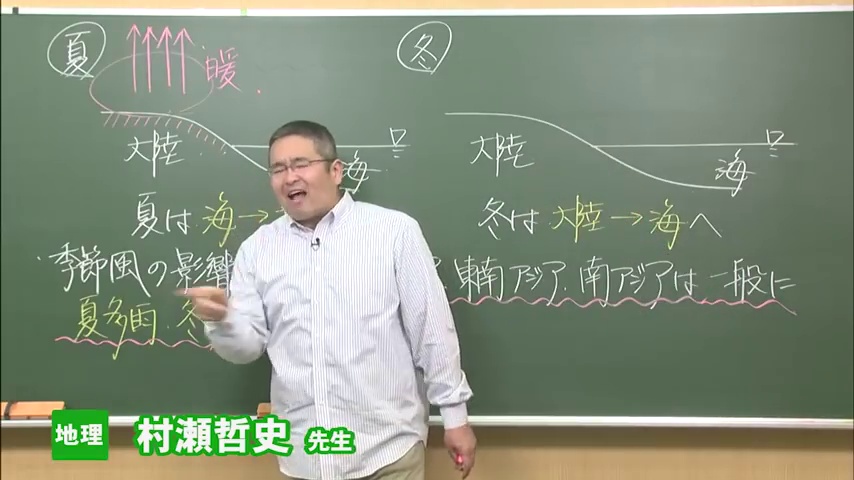 夏
暖
冬
大陸
海
大陸
海
夏は 海→
冬は 大陸→海へ
季節風の影響
東南アジア.南アジアは一般に
夏多雨.冬
地理
村瀬哲史 先生